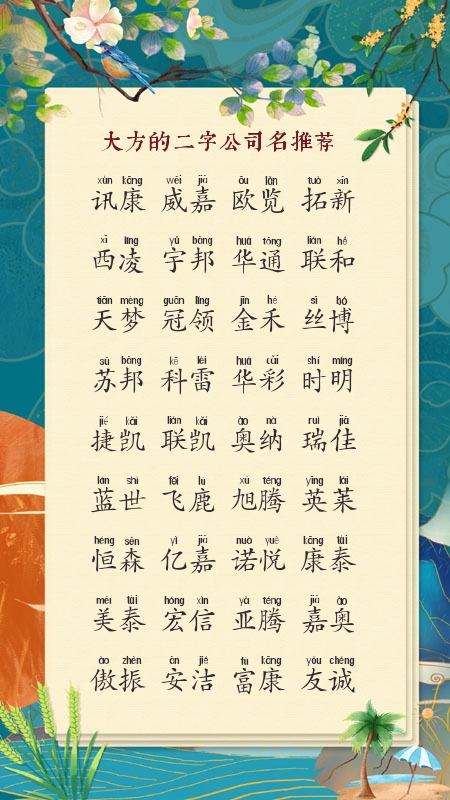 大方的二字公司名推荐
xùn kāng wēi jiā ōu lǎn tuò xīn
讯康 威嘉 欧览 拓新
xī líng yǔ bāng huá tōng lián hé
西凌 宇邦 华通 联和
tiān mèng guān lǐng jīn hé sī bó
天梦 冠领 金禾 丝博
sū bāng kē léi huá cǎi shí míng
苏邦 科雷 华彩 时明
jié kǎi lián kǎi ào nà ruì jiā
捷凯 联凯 奥纳 瑞佳
lán shì fēi lù xù téng yīng lái
蓝世 飞鹿 旭腾 英莱
héng sēn yì jiā nuò yuè kāng tài
恒森 亿嘉 诺悦 康泰
měi tài hóng xìn yà téng jiā ào
美泰 宏信 亚腾 嘉奥
ào zhèn ān jié fù kāng yǒu chéng
傲振 安洁 富康 友诚